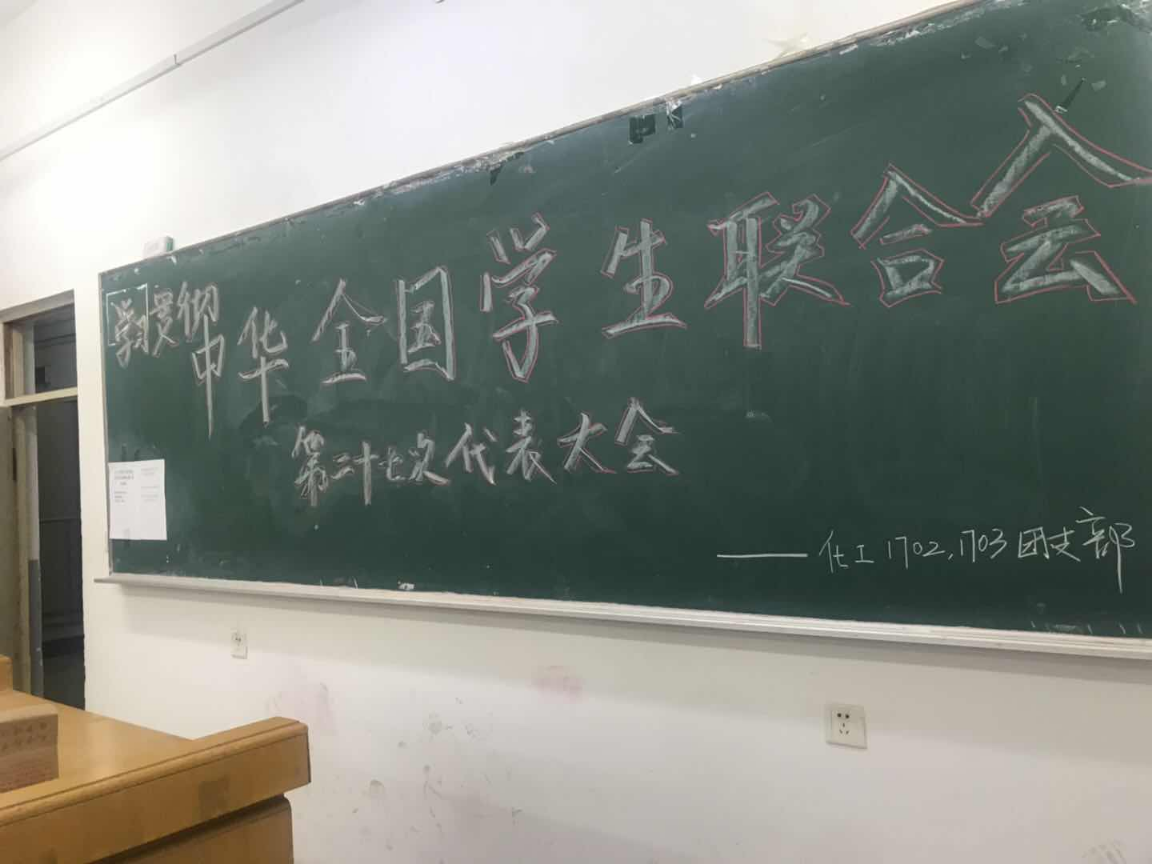 学习贯彻
中华全国学生联合会
第二十七次代表大会
——化工1702,1703团支部